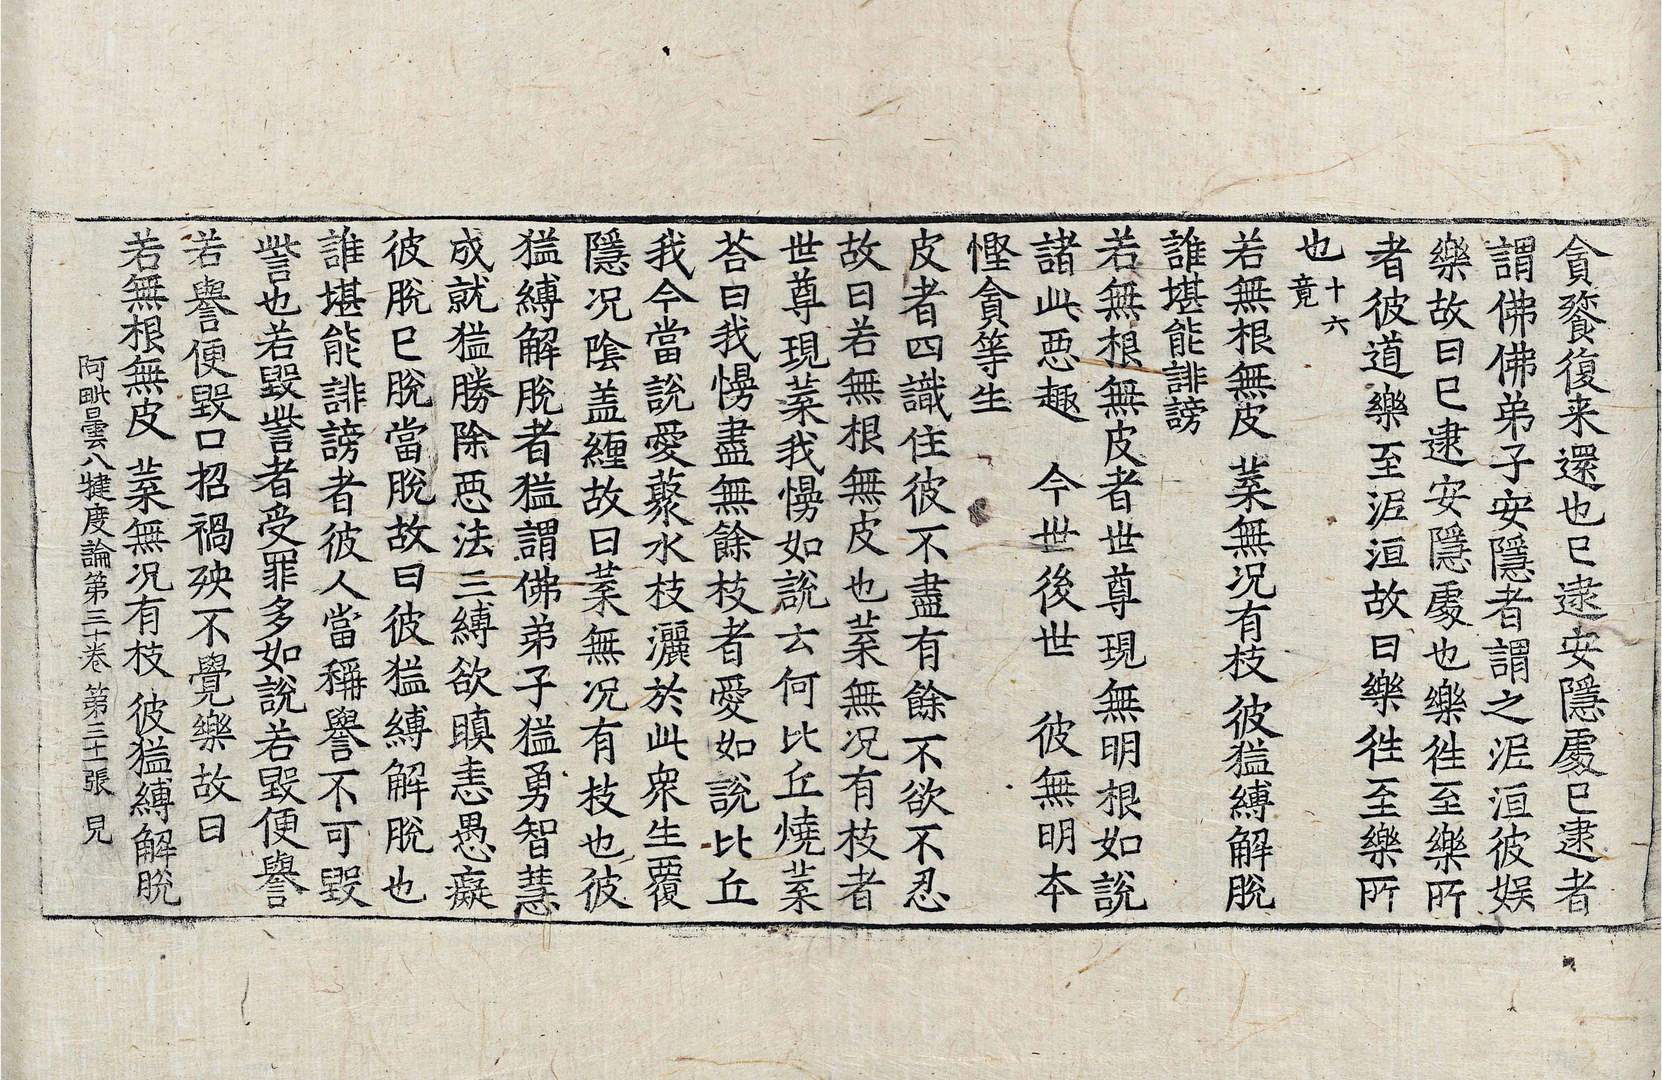 貪餮復来還也已逮安隱處已逮者
謂佛佛弟子安隱者謂之泥洹彼娛
樂故曰已逮安隱處也樂徃至樂所
者彼道樂至泥洹故曰樂徃至樂所
也十六竟
若無根無皮 葉無況有枝 彼猛縛解脫
誰堪能誹謗
若無根無皮者世尊現無明根如說
諸此惡趣 今世後世 彼無明本
慳貪等生
皮者四識住彼不盡有餘不欲不忍
故曰若無根無皮也葉無況有枝者
世尊現葉我慢如說云何比丘燒葉
荅曰我慢盡無餘枝者愛如說比丘
我今當說愛藂水枝灑於此衆生覆
隱況陰盖纏故曰葉無況有枝也彼
猛縛解脫者猛謂佛弟子猛勇智慧
成就猛勝除惡法三縛欲瞋恚愚癡
彼脫已脫當脫故曰彼猛縛解脫也
誰堪能誹謗者彼人當稱譽不可毀
訾也若毀訾者受罪多如說若毀便譽
若譽便毀口招禍殃不覺樂故曰
若無根無皮 葉無況有枝 彼猛縛解脫
阿毗曇八犍度論第三十卷 第三十一張 見